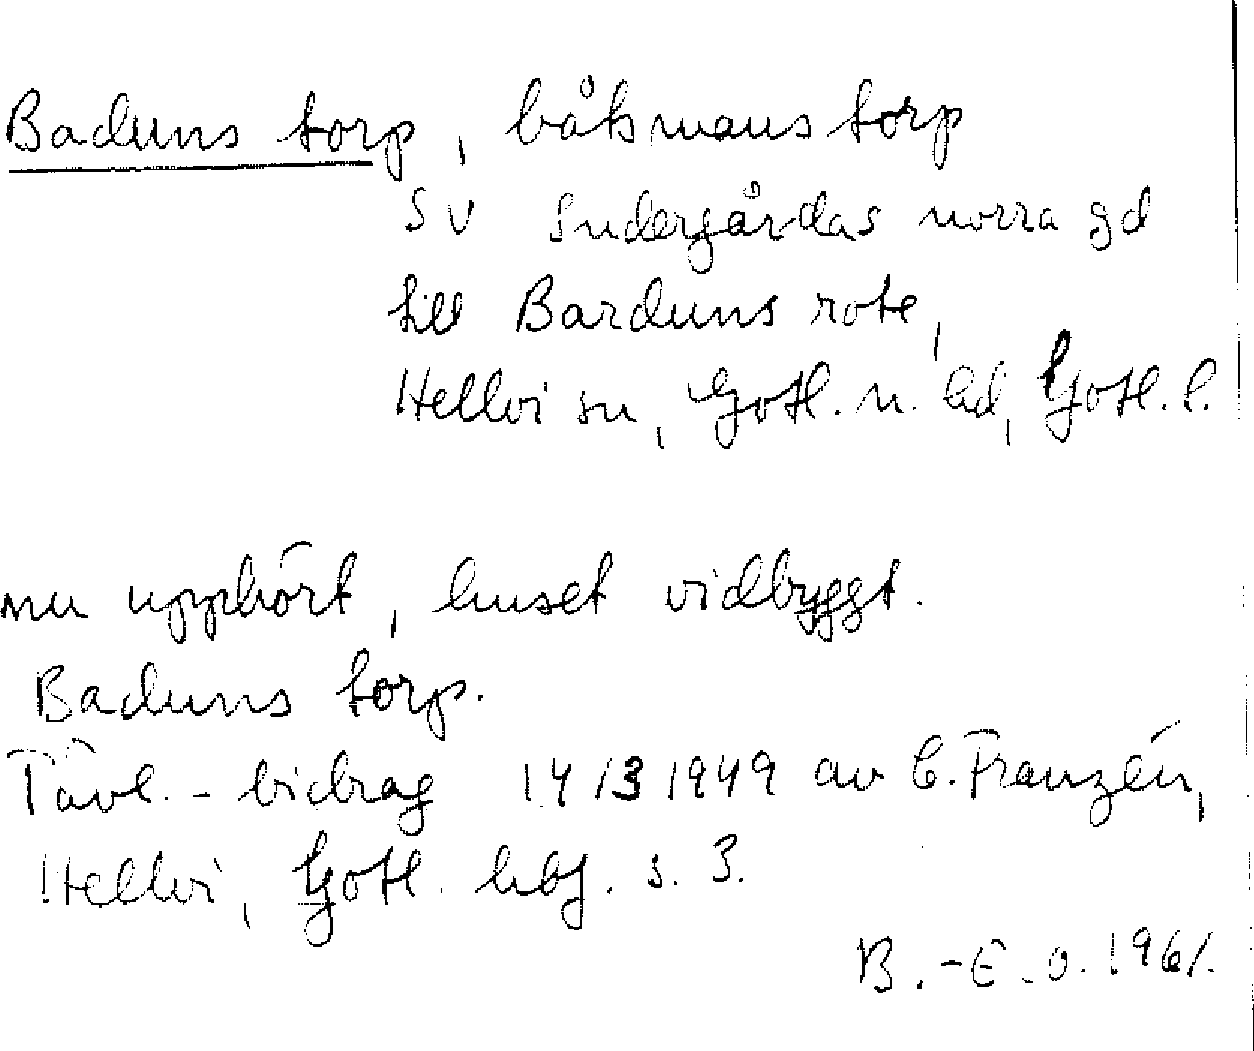 Baduns torp, båtsmanstorp
SV Sudergårdas norra gd
till Barduns rote,
Hellvi sn, Gotl. n. hd, Gotl. l.
nu upphört, huset vidbyggt.
Baduns torp.
Tävl. - bidrag 14/3 1949 av C. Franzén,
Hellvi, Gotl. hbf. s. 3.
B.-E. O. 1961.